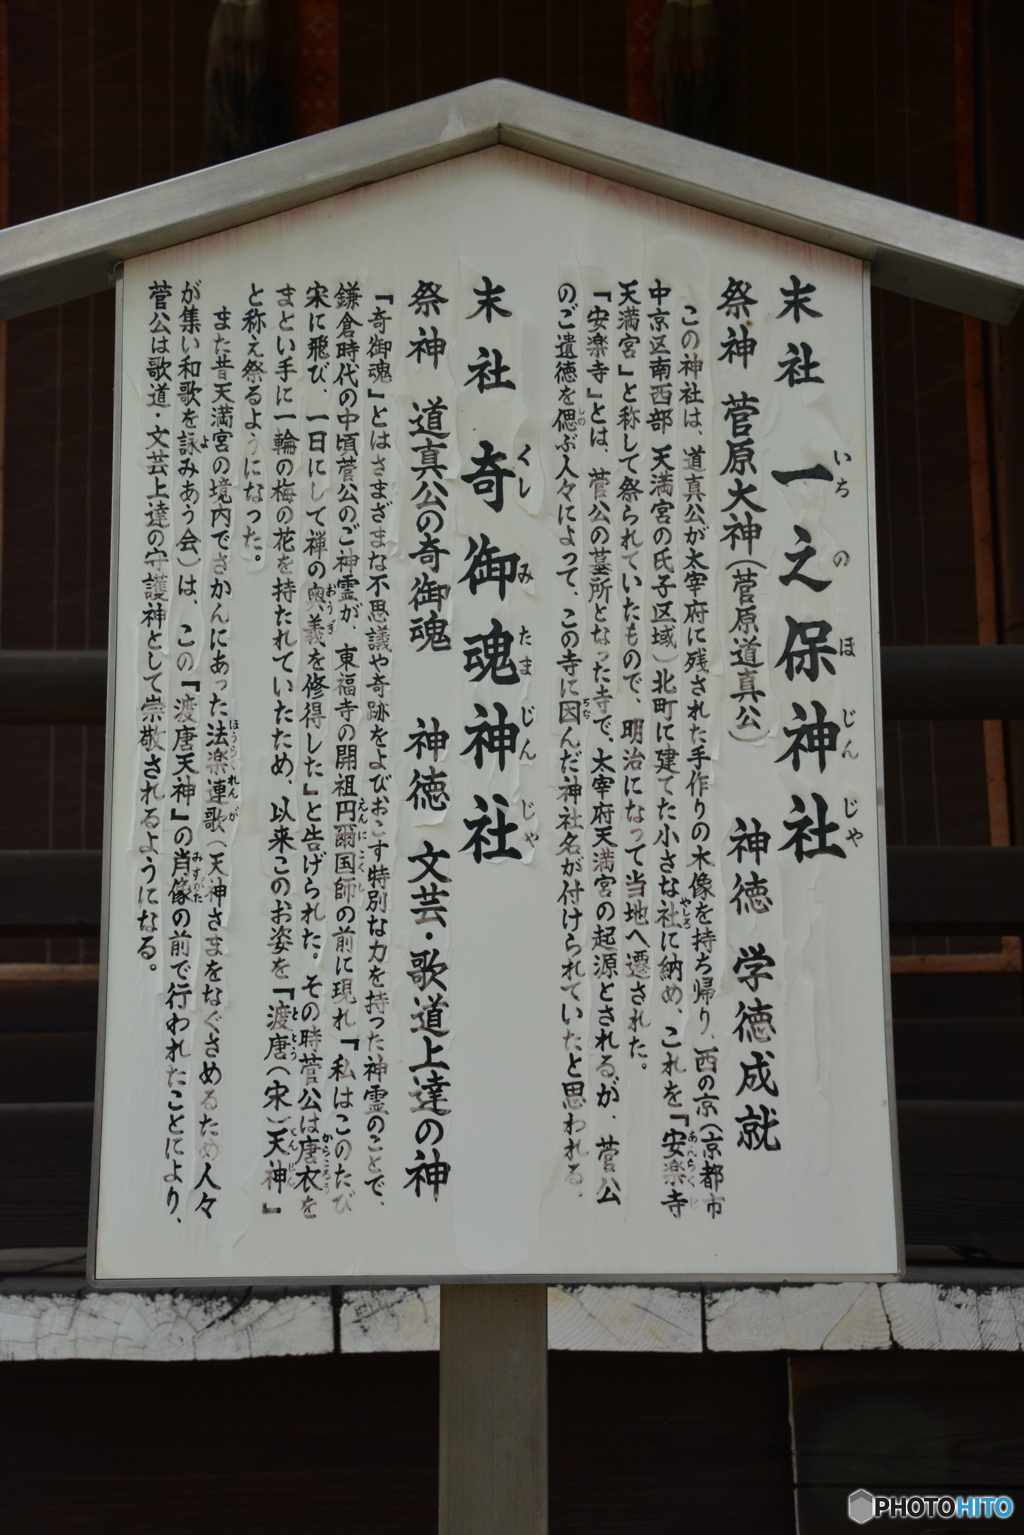 末社 一之保神社
いちのほじんじゃ
祭神 菅原大神(菅原道真公) 神徳 学徳成就
この神社は、道真公が太宰府に残された手作りの木像を持ち帰り、西の京(京都市
中京区南西部 天満宮の氏子区域)北町に建てた小さな社に納め、これを『安楽寺
やしろ
あんらくじ
天満宮』と称して祭られていたもので、明治になって当地へ遷された。
『安楽寺』とは、菅公の墓所となった寺で、太宰府天満宮の起源とされるが、菅公
のご遺徳を偲ぶ人々によって、この寺に因んだ神社名が付けられていたと思われる。
しの
ちな
末社 奇御魂神社
くしみたまじんじゃ
祭神 道真公の奇御魂 神徳 文芸・歌道上達の神
『奇御魂』とはさまざまな不思議や奇跡をよびおこす特別な力を持った神霊のことで、
鎌倉時代の中頃菅公のご神霊が、東福寺の開祖円爾国師の前に現れ『私はこのたび
えんにこくし
宋に飛び、一日にして禅の奥義を修得した』と告げられた。その時菅公は唐衣を
おうぎ
からころも
まとい手に一輪の梅の花を持たれていたため、以来このお姿を『渡唐(宋)天神』
ととう
てんじん
と称え祭るようになった。
また昔天満宮の境内でさかんにあった法楽連歌(天神さまをなぐさめるため人々
ほうらくれんが
が集い和歌を詠みあう会)は、この『渡唐天神』の肖像の前で行われたことにより、
よ
みすがた
菅公は歌道・文芸上達の守護神として崇敬されるようになる。
PHOTOHITO